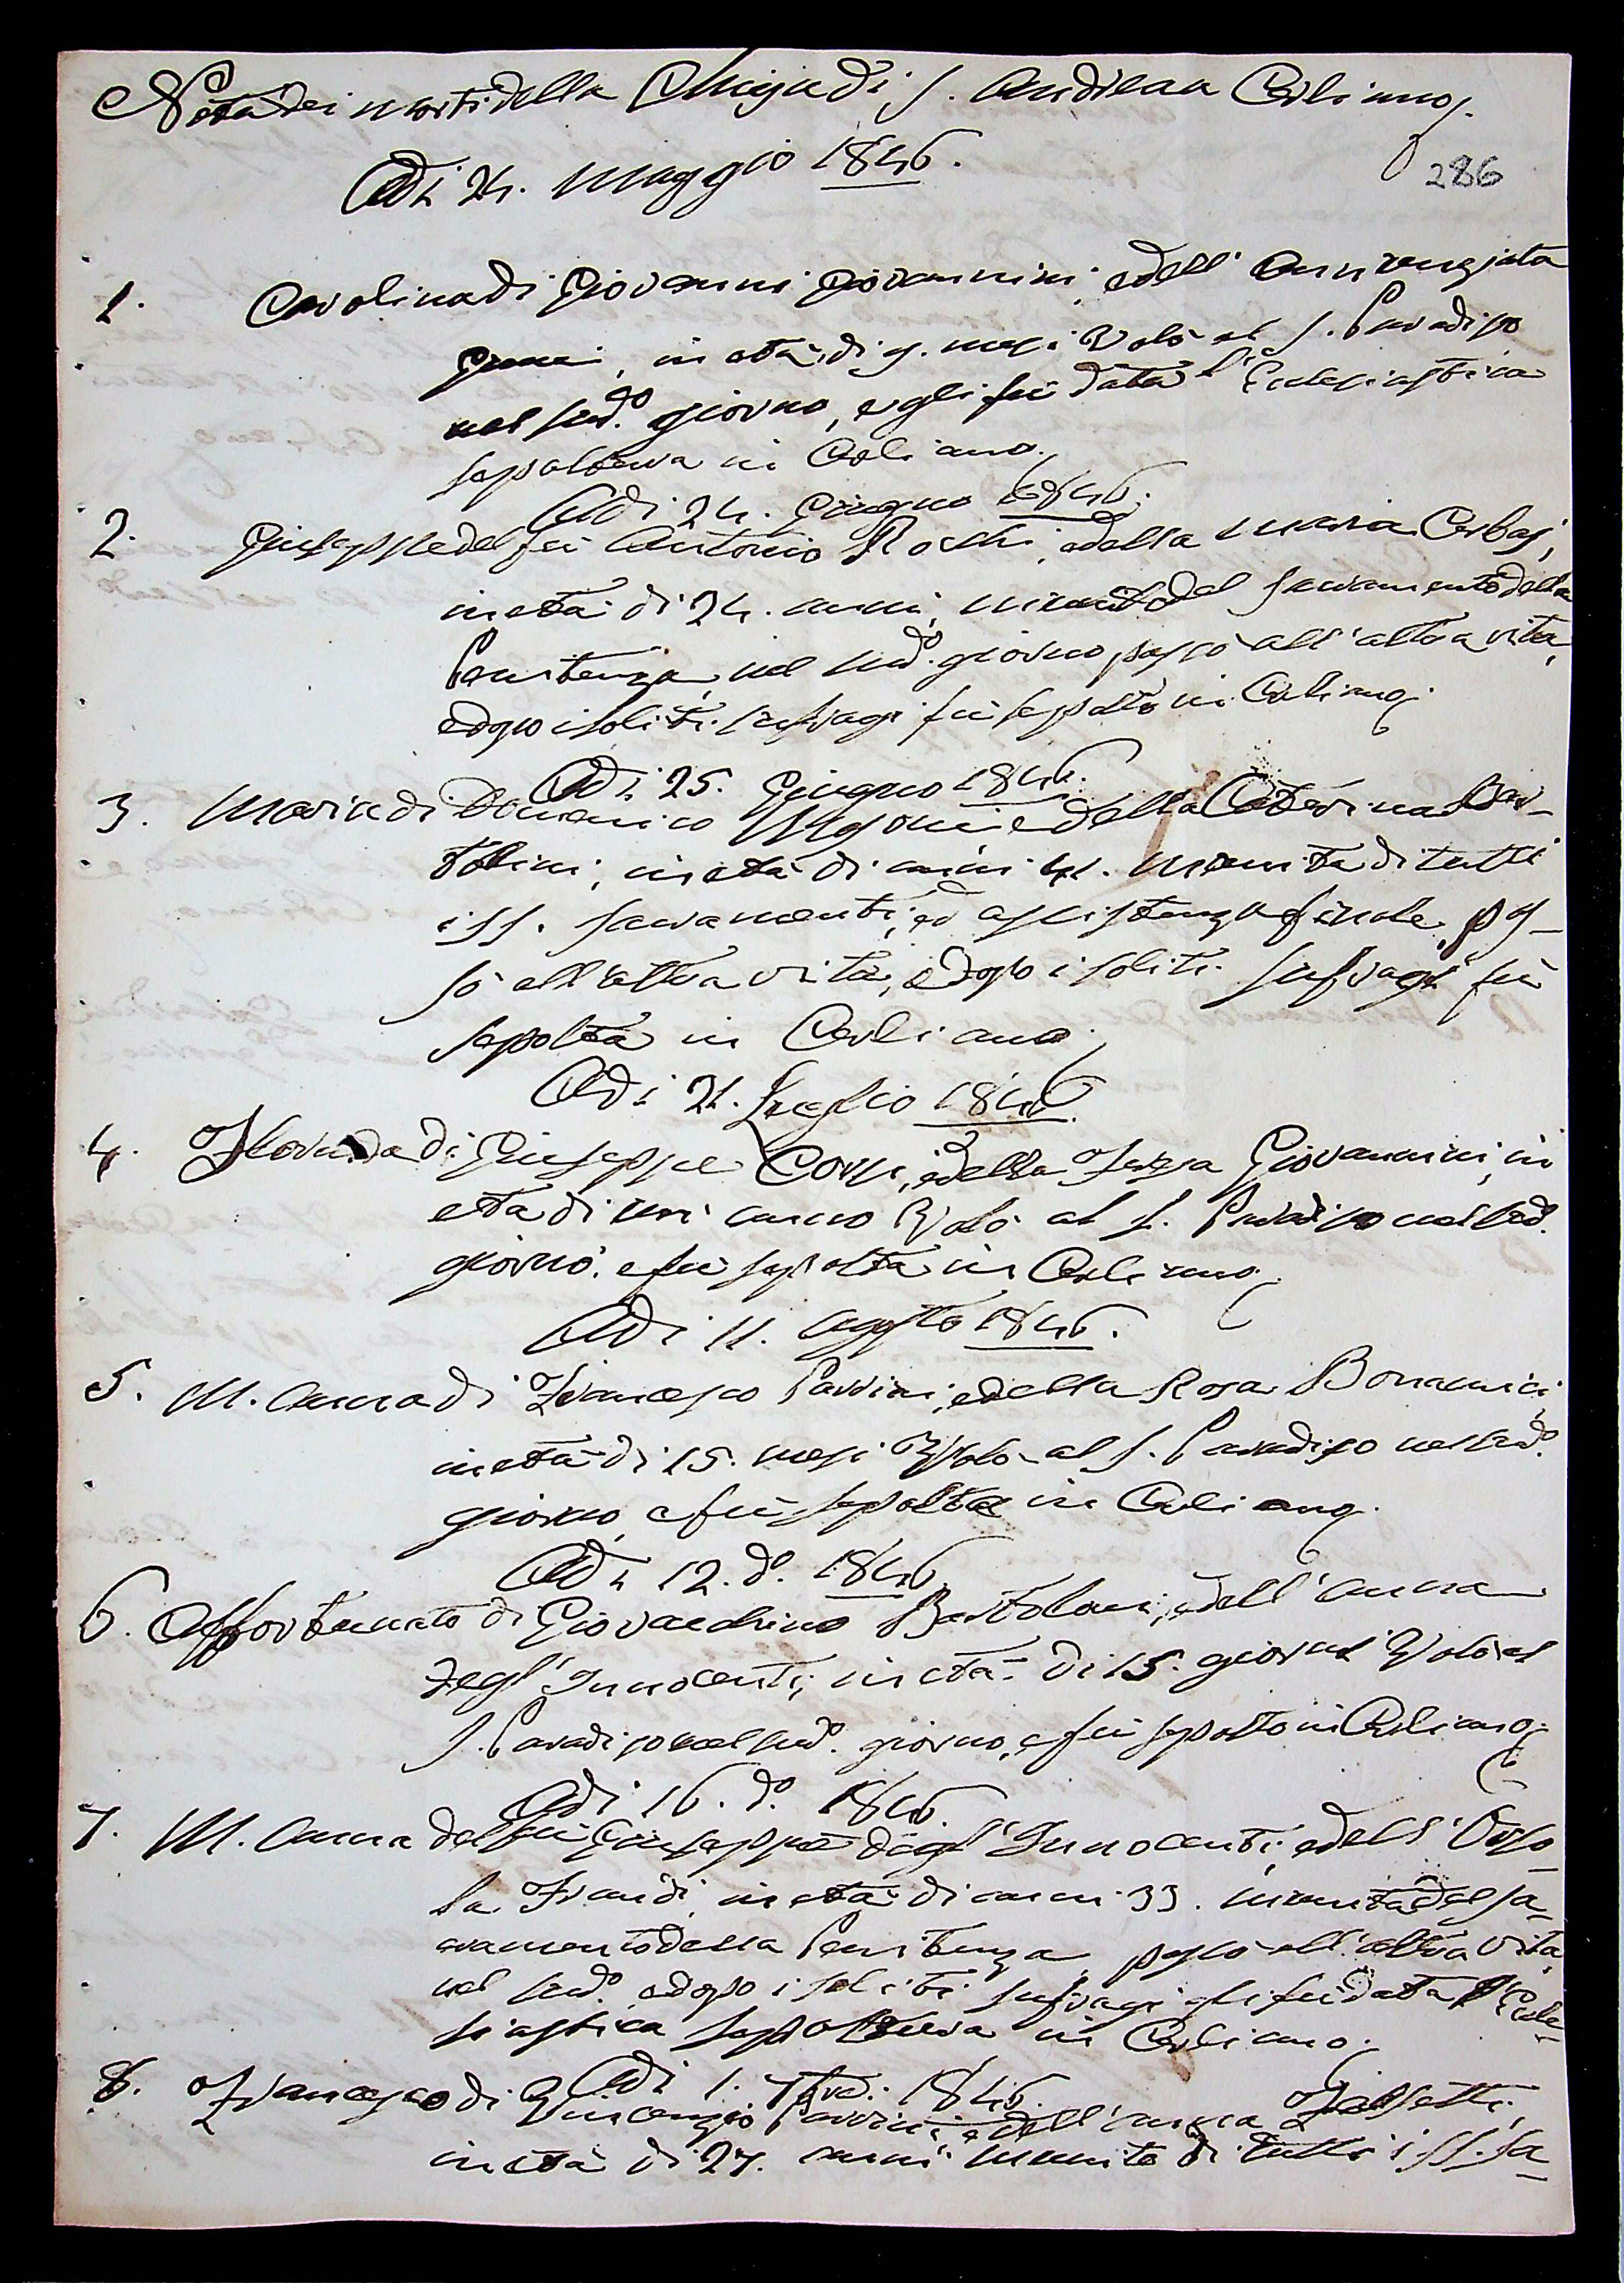 Nota dei morti della Chiesa di S. Andrea a Cerliano.
Adì 24. Maggio 1846.
286
1. Carolina di Giovanni Giovannini, e dell' Annunziata
in età di 9. mesi Volò al S. Paradiso
nel sud.o giorno, e gli fù data l'Eclesiastica
sepoltura in Cerliano.
Adì 24. Giugno 1846.
2. Giuseppe del fù Antonio Rochi, e della Maria Cerbai,
in età di 24. anni, munito del Sacramento della
Penitenza, nel sud.o giorno passò all'altra vita,
e dopo i soliti sufragi fù sepolto in Cerliano.
Adì 25. Giugno 1846.
3. Maria di Domenico e della Caterina Bar-
tolini, in età di anni 41. munita di tutti
i SS. Sacramenti, ed assistenza finale, pas-
sò all'altra vita, e dopo i soliti sufragi fù
sepolta in Cerliano.
Adì 21. Luglio 1846.
4. Florinda di Giuseppe Corsi, e della Teresa Giovannini, in
età di un anno Volò al S. Paradiso nel sud.o
giorno, e fù sepolta in Cerliano.
Adì 11. Agosto 1846.
5. M. Anna di Francesco Parrini, e della Rosa Bonamici,
in età di 15. mesi Volò al S. Paradiso nel sud.o
giorno, e fù sepolta in Cerliano.
Adì 12. d.o 1846
6. Affortunato di Giovacchino Bartoloni, e dell'Anna
degl'Innocenti, in età di 15. giorni Volò al
S. Paradiso nel sud.o giorno, e fù sepolto in Cerliano.
Adì 16. d.o 1846.
7. M. Anna del fù Giuseppe degl'Innocenti, e dell'Orso-
la Frandi, in età di anni 33. munita del Sa-
cramento della Penitenza, passò all'altra vita,
nel sud.o e dopo i soliti sufragi gli fù data l'Ecle-
siastica sepoltura in Cerliano.
Adì 1. 7bre. 1846.
8. Francesco di Vincenzio Parrini, e dell'Anna
in età di 27. anni munito di tutti i SS. Sa-